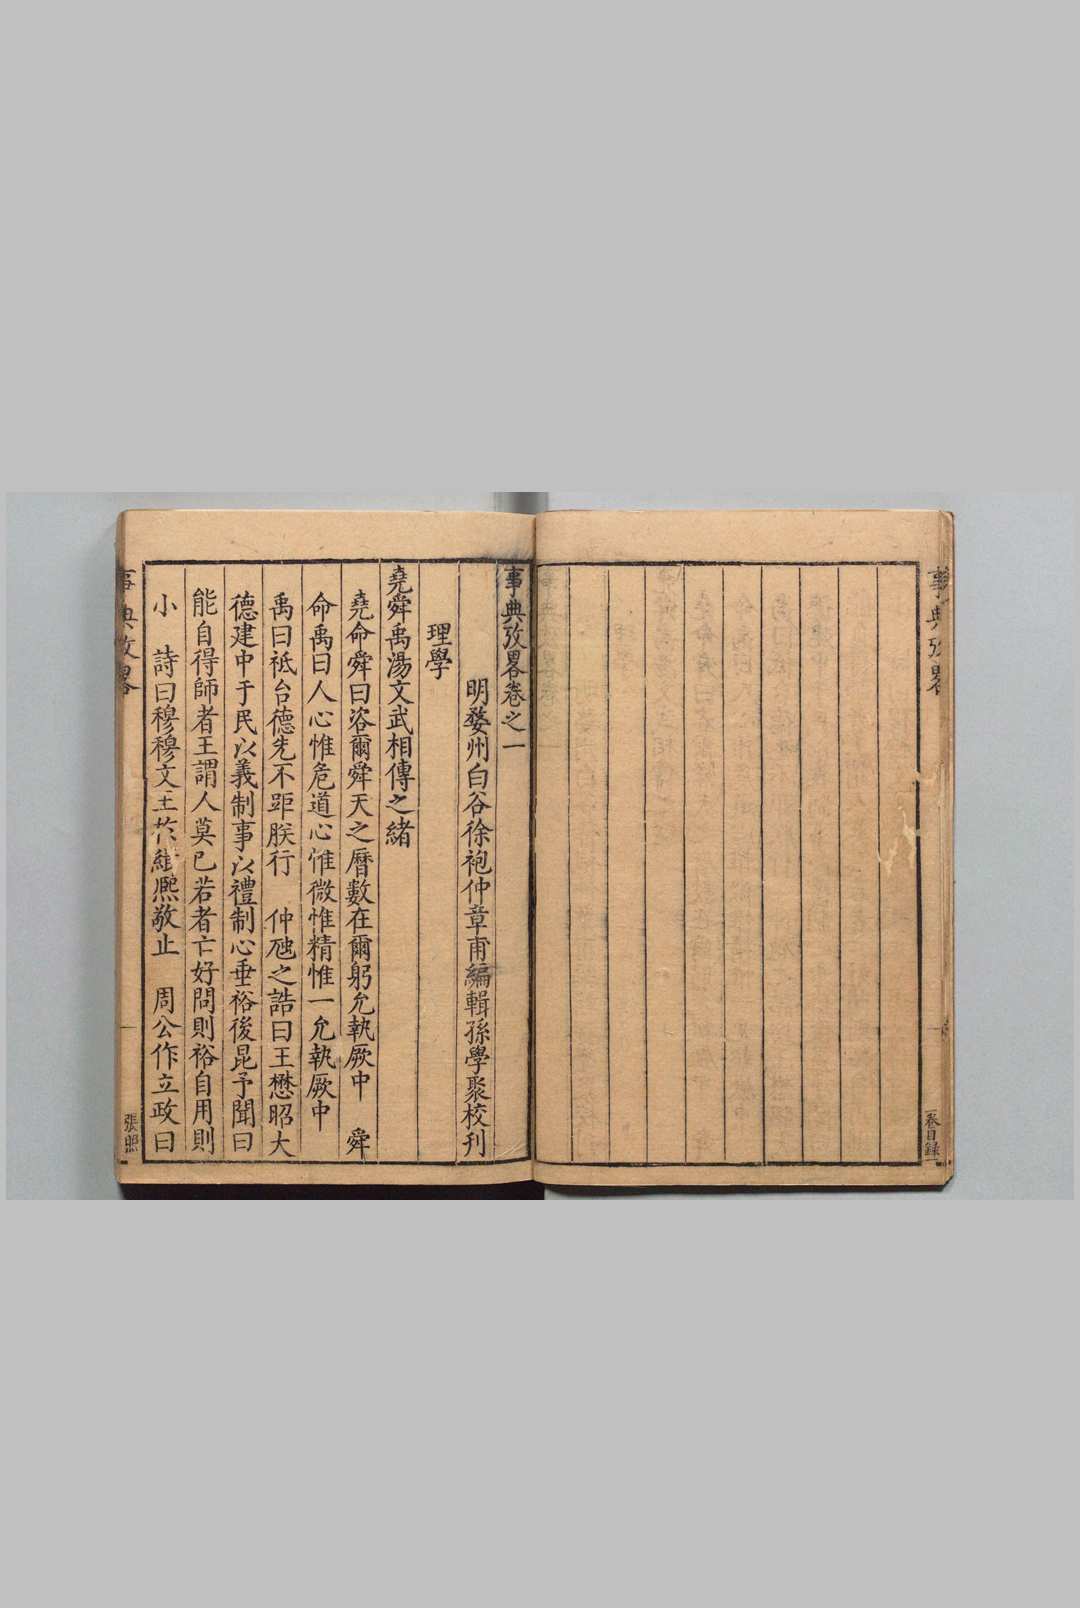 事典攷畧
卷目錄
事典攷畧卷之一
明婺州白谷徐袍仲章甫編輯孫學聚校刊
理學
堯舜禹湯文武相傳之緒
堯命舜曰咨爾舜天之曆數在爾躬允執厥中　舜
命禹曰人心惟危道心惟微惟精惟一允執厥中
禹曰祗台德先不距朕行　仲虺之誥曰王懋昭大
德建中于民以義制事以禮制心垂裕後昆予聞曰
能自得師者王謂人莫已若者亡好問則裕自用則
小　詩曰穆穆文王於緝熙敬止　周公作立政曰
事典攷畧
張照